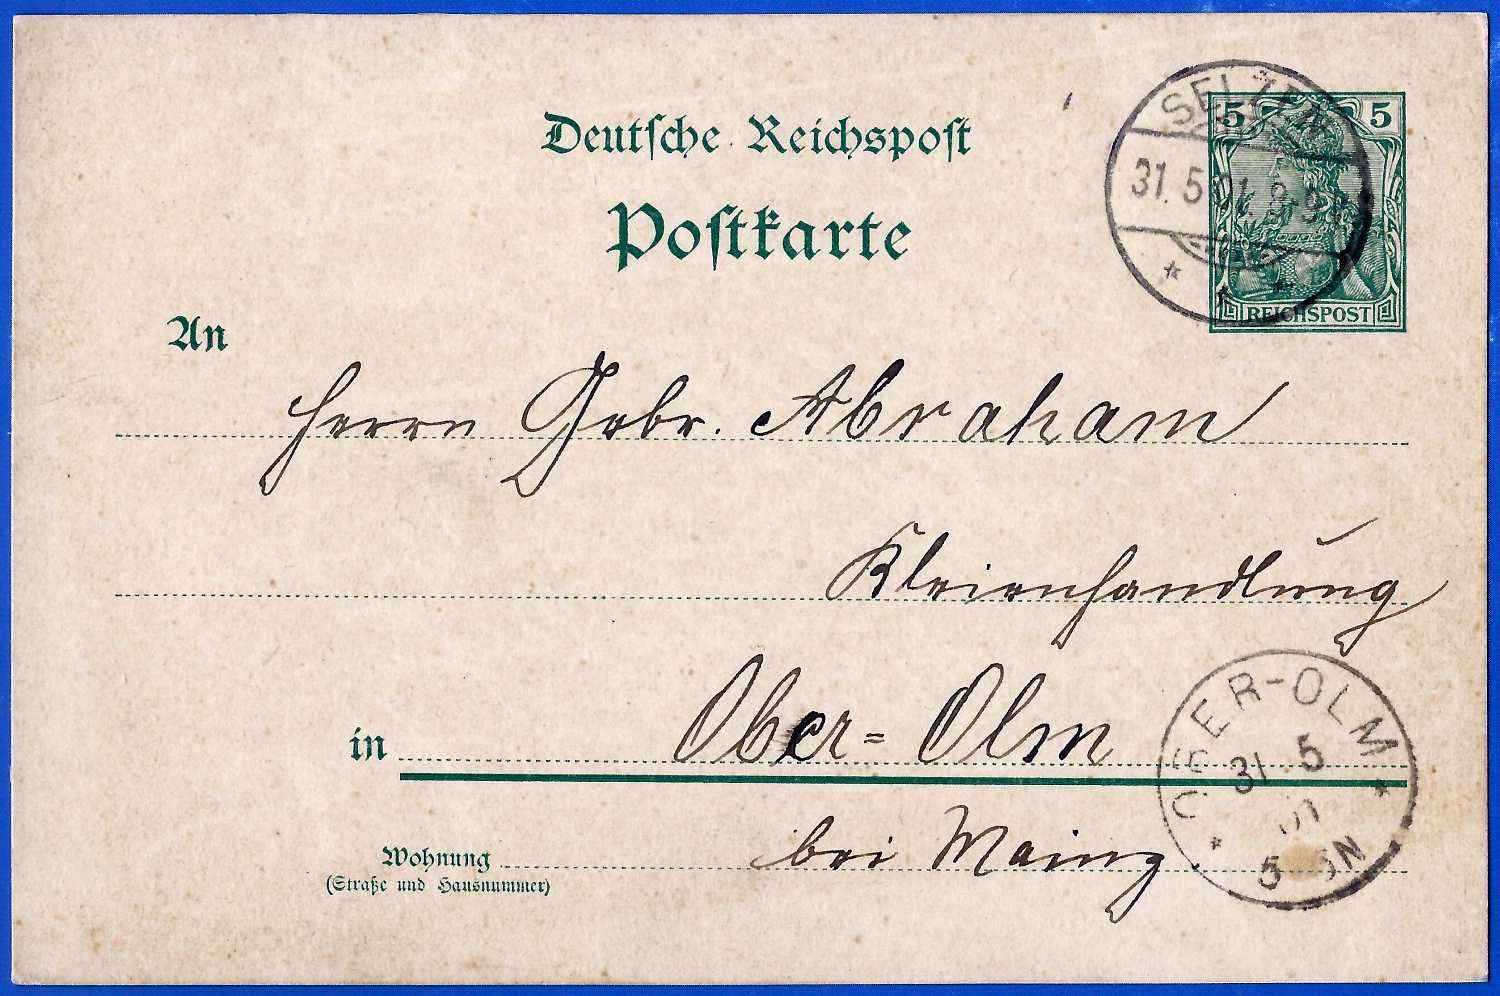 Deutsche Reichspost
Postkarte
SELZEN
31. 5 01. 8-9
5 5
REICHSPOST
An
Herrn Gebr. Abraham
Kleienhandlung
in Ober=Olm
bei Mainz
Wohnung
(Straße und Hausnummer)
OBER-OLM
31 5
01
5 N